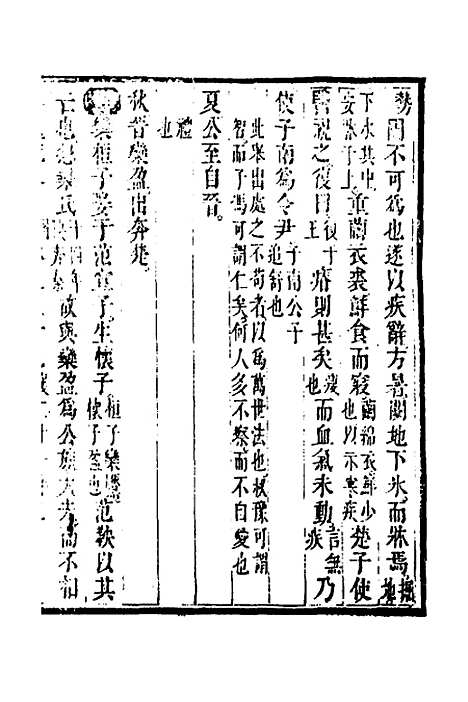 國不可爲也遂以疾辭方暑闕地下氷而牀焉掘地
下氷其中安牀于上重繭衣裘鮮食而寢繭綿衣鮮少也以示寒疾楚子使
醫視之復曰復于王瘠則甚矣瘦也而血氣未動言無疾乃
使子南爲令尹子南公子追舒也
此舉出處之不苟者以爲萬世法也叔豫可謂
智而子馮可謂仁矣何人多不察而不自愛也
夏公至自晉。
禮也
秋晉欒盈出奔楚。
欒桓子娶于范宣子生懷子桓子欒黶懷子盈也范鞅以其
亡也怨欒氏故與欒盈爲公族大夫而不相